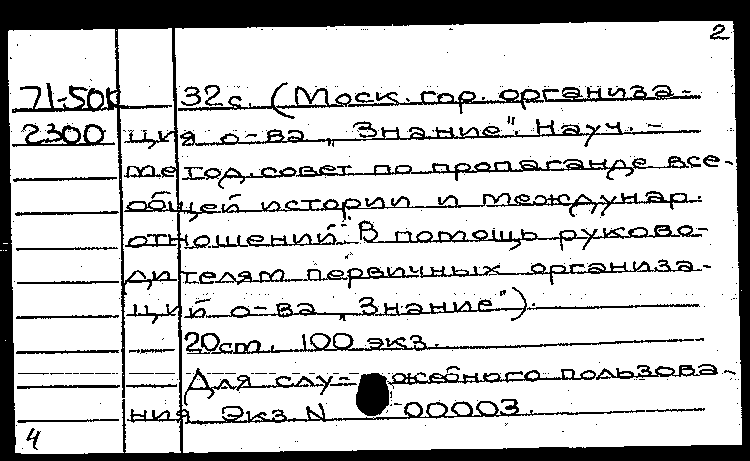 2
71-50к 32с. (Моск. гор. организа-
2300 ция о-ва „Знание". Науч.-
метод. совет по пропаганде все-
общей истории и междунар.
отношений. В помощь руково-
дителям первичных организа-
ций о-ва „Знание").
20см. 100 экз.
Для слу-жебного пользова-
ния Экз. N 00003.
4